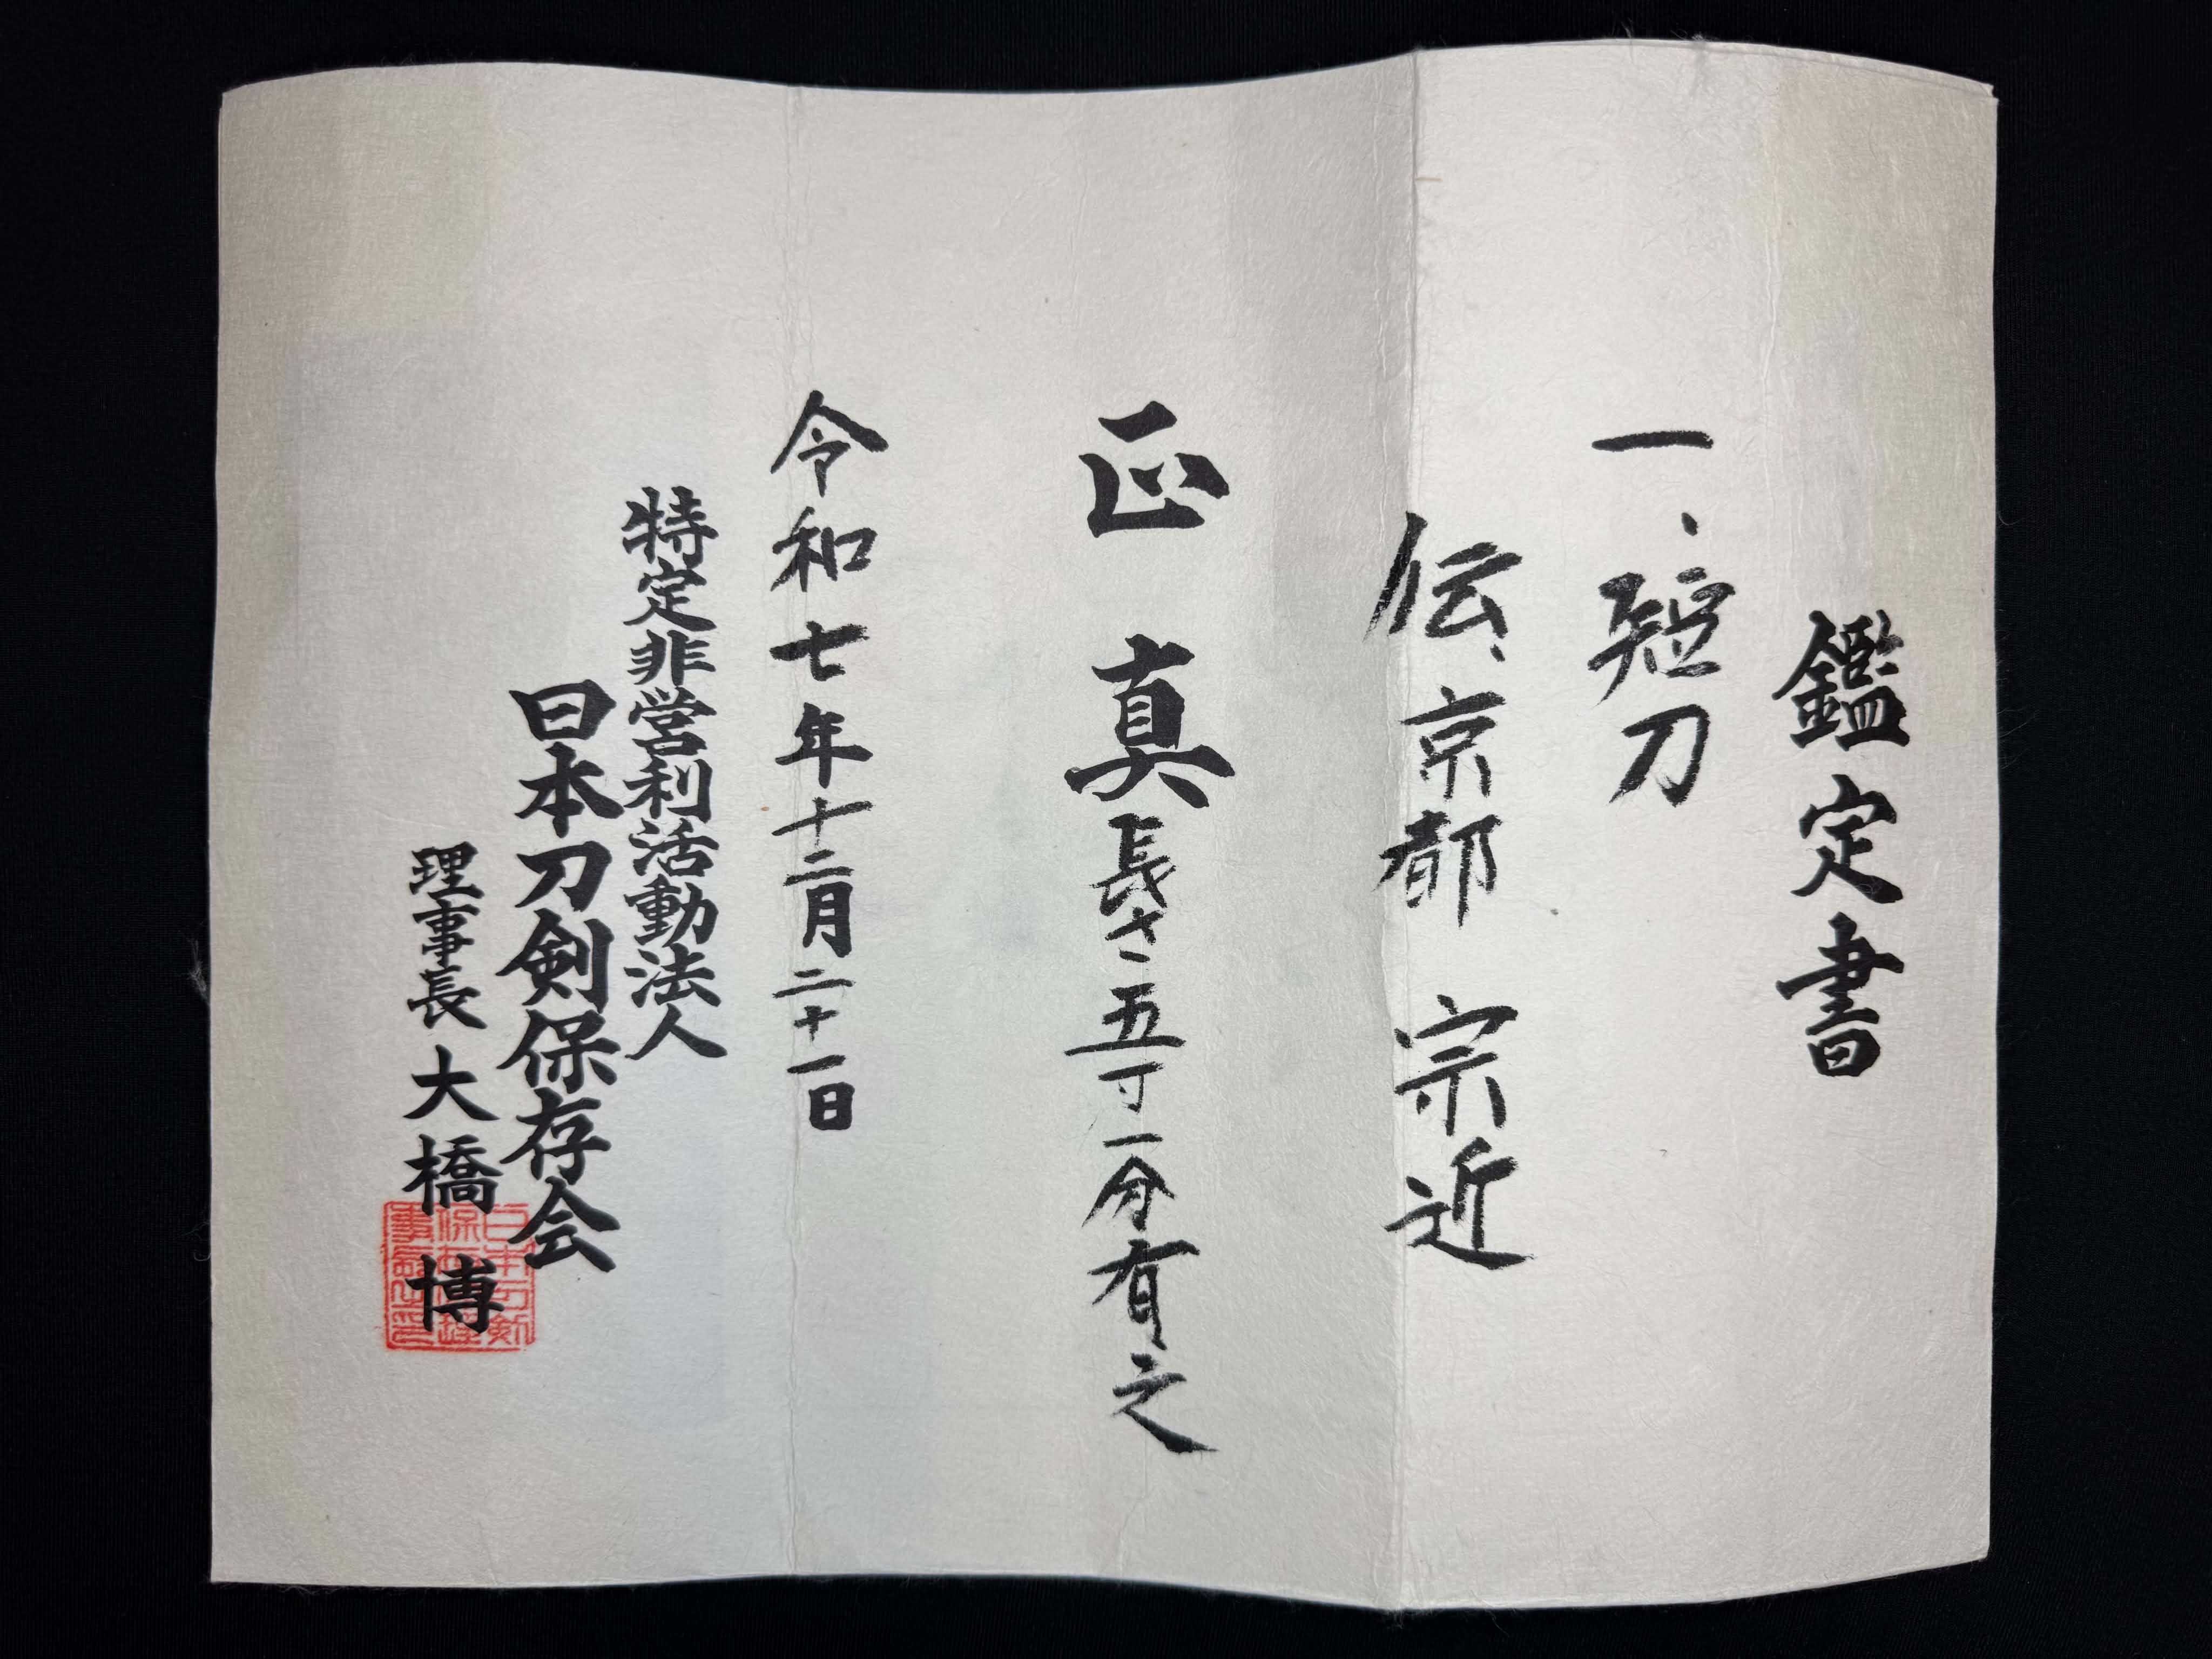 鑑定書
一、短刀
伝、京都 宗近
正真 長さ五寸一分有之
令和七年十二月二十一日
特定非営利活動法人
日本刀剣保存会
理事長 大橋 博